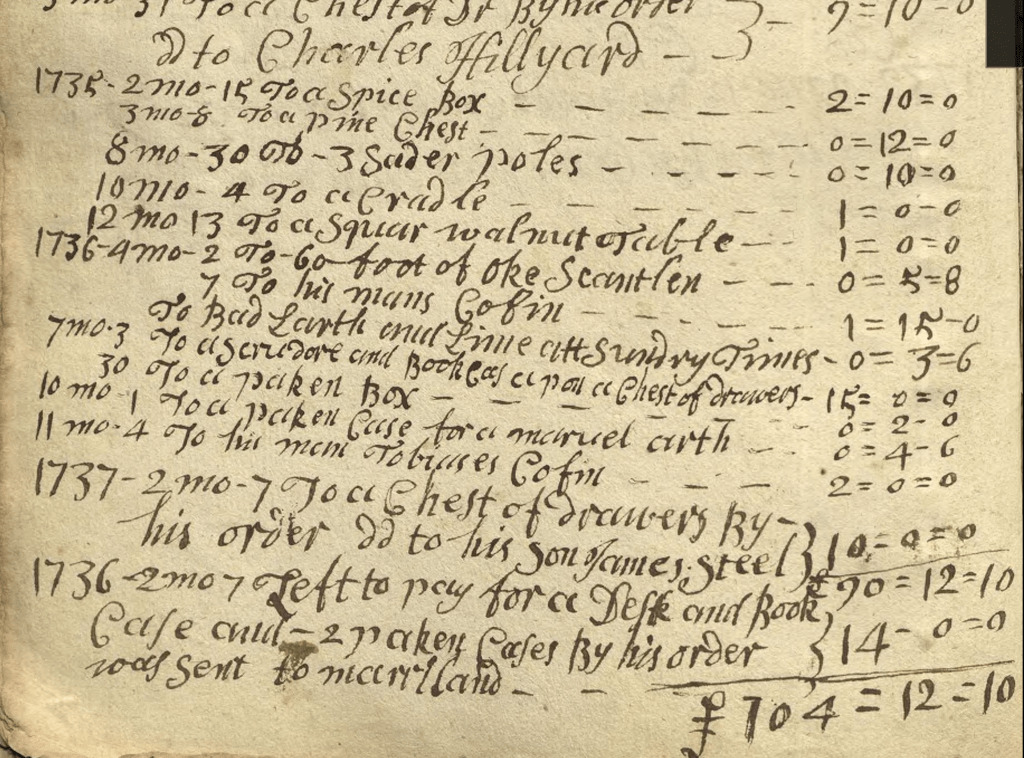 31 To a Chest of Dr By his order 9=10-0
dd to Charles Hillyard - -
1735-2mo-15 To a Spice Box - - - - - 2=10=0
3mo-8 To a pine Chest - - - - - - 0=12=0
8mo-30 To -3 Sader poles - - - - 0=10=0
10mo-4 To a Cradle - - - - - - 1=0-0
12mo 13 To a Squar walnut Table - - 1=0=0
1736-4mo-2 To-60 foot of oke Scantlen - - - 0=5=8
7 To his mans Cofin - - - - - 1=15-0
To Bad Earth and Lime att Sundry Times - 0=3=6
7mo-3 To a Scrudore and Book Cas a pon a Chest of drawers - 15=0=0
30 To a paken Box - - - - - - 0=2-0
10mo-1 To a paken Case for a marvel arth - - 0=4-6
11mo-4 To his man Tobiases Cofin - - - - 2=0=0
1737-2mo-7 To a Chest of drawers By -
his order dd to his son James Steel } 10=0=0
£ 90=12=10
1736-2mo 7 Left to pay for a Desk and Book
Case and -2 paken Cases By his order } 14-0=0
was sent to mariland - -
£ 104=12=10